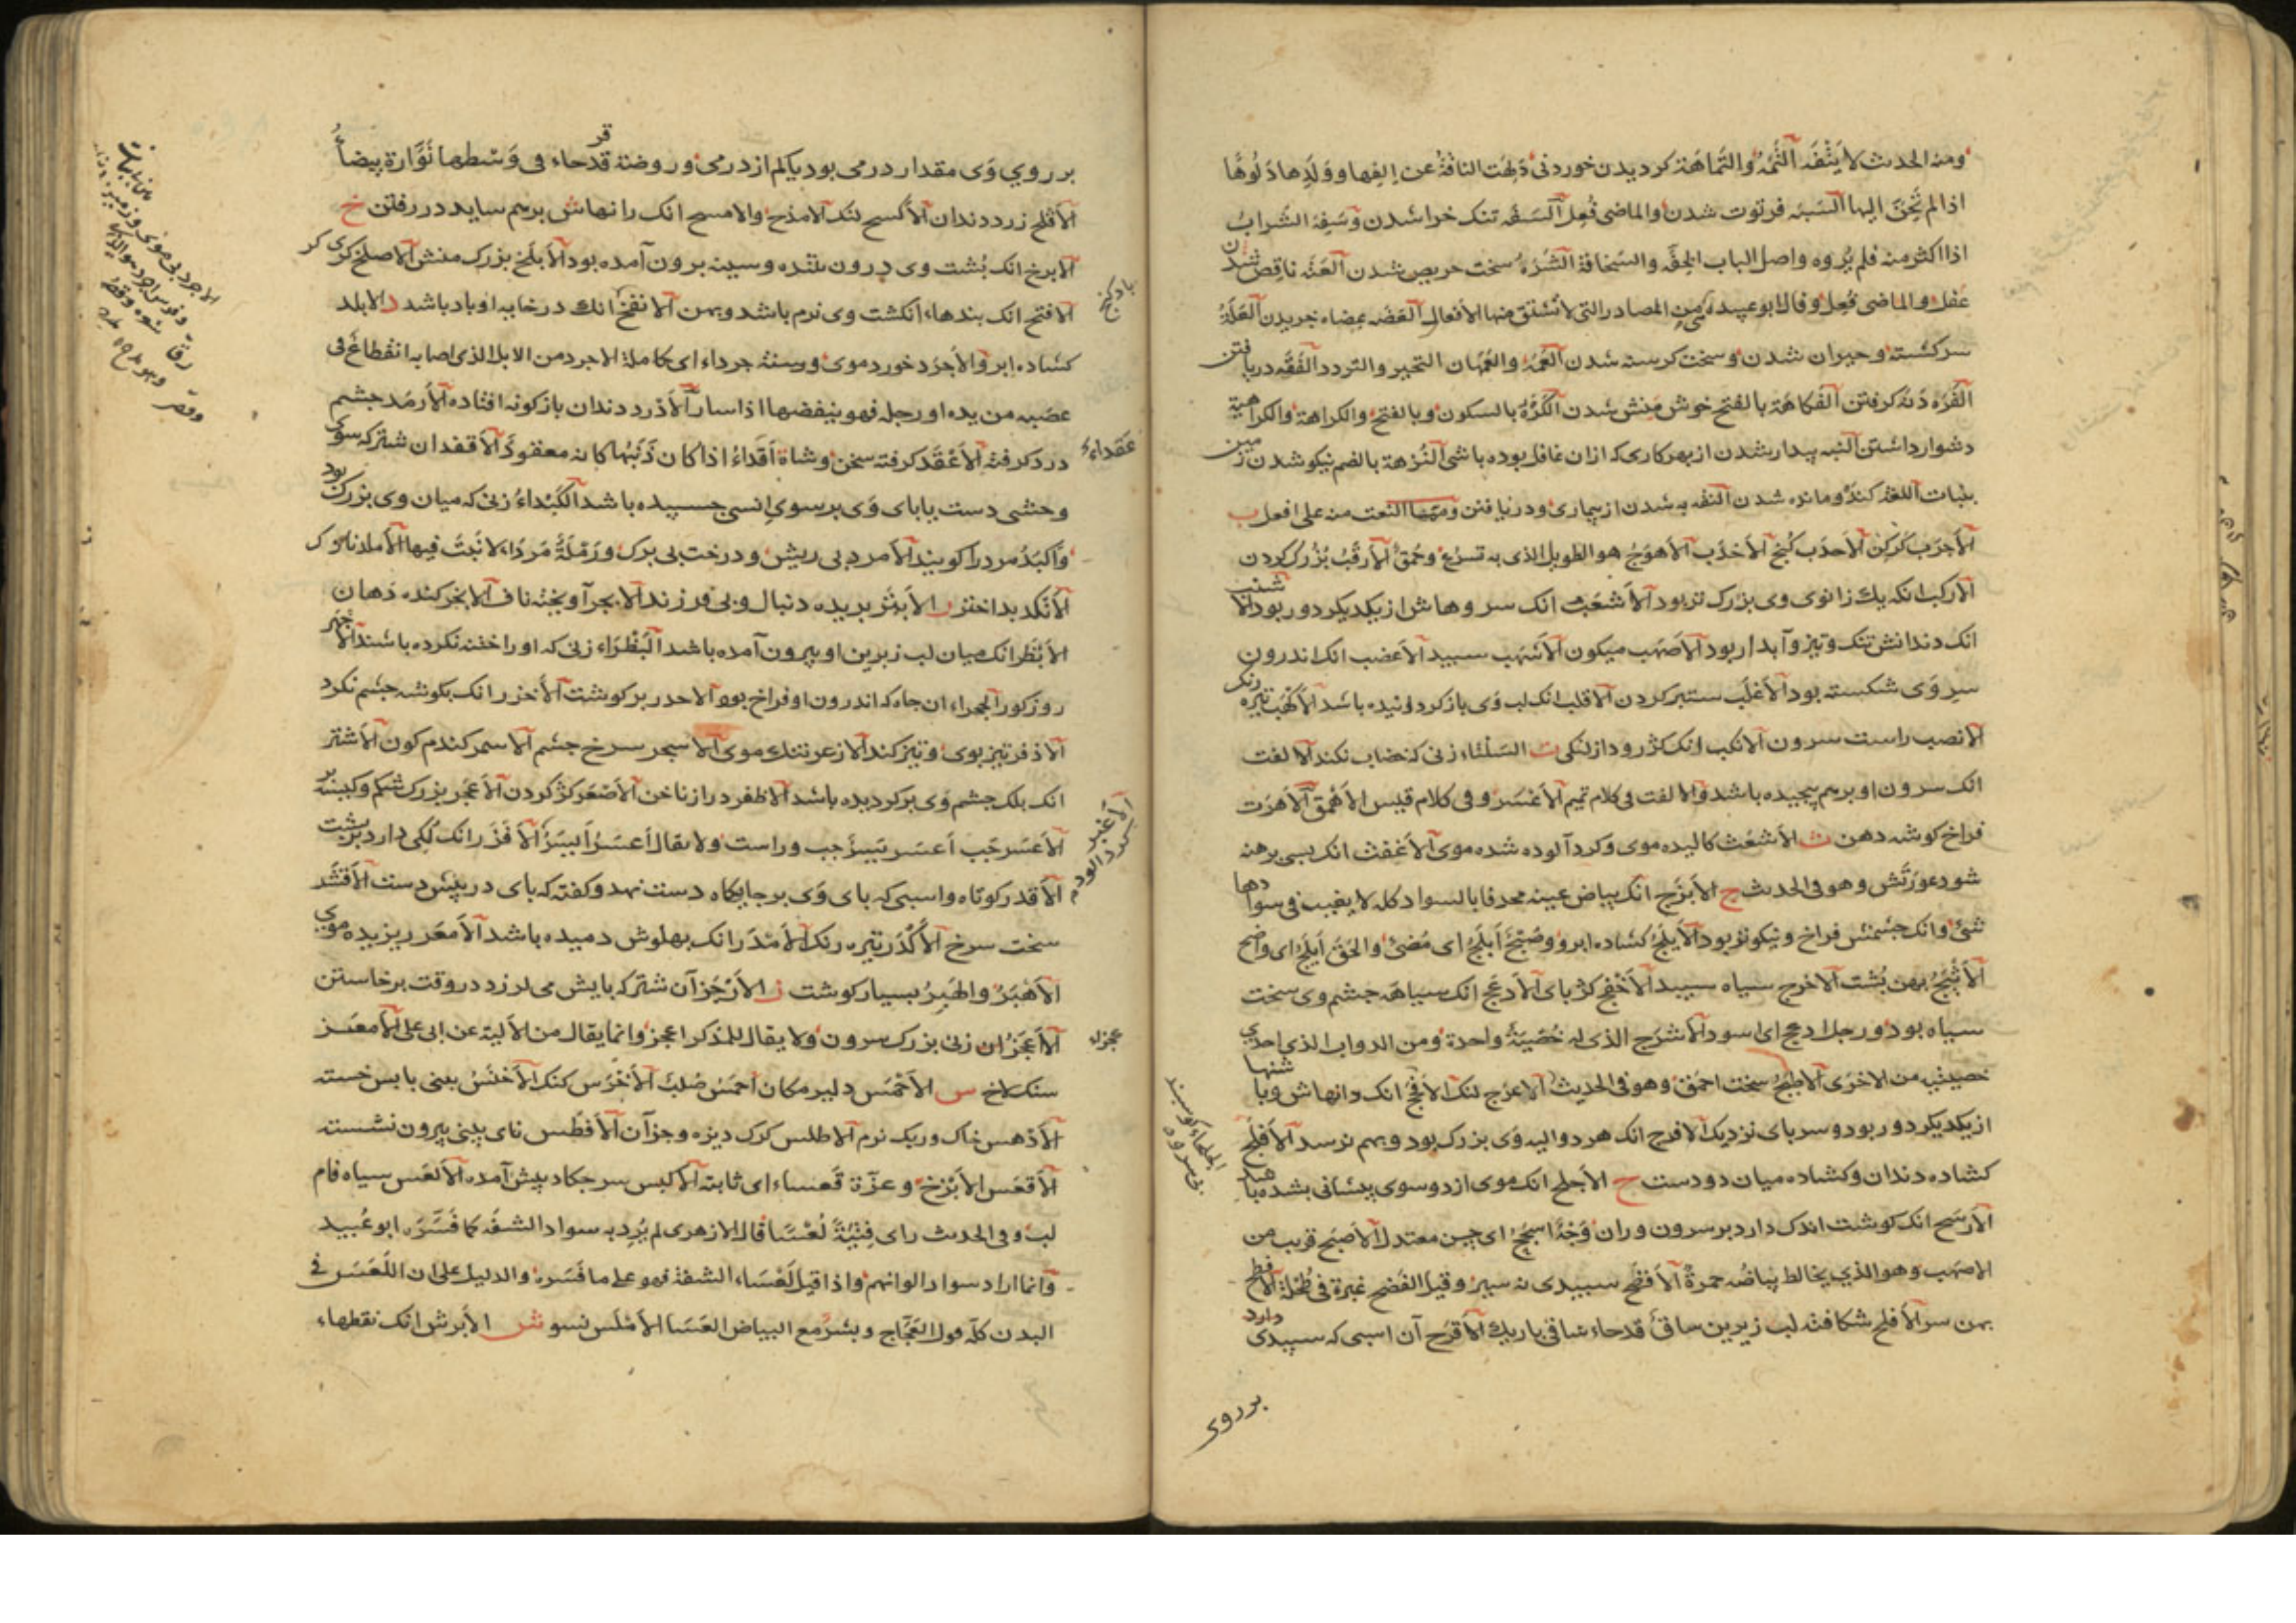 ومنه الحديث لا يَتْفَه التَّفَهُ والتَّمَاهَة كرديدن خوردنى دَلِهَت الناقةُ عن اِلفِها ووَلَدِها دَلُوهًا
اذا لم تَحِنَّ اليها السَّبَه فرتوت شدن والماضى فُعِل السَّفَه تنك خرا شدن وسَفِهَ الشرابَ
اذا اكثر منه فلم يُروه واصل الباب الخِفّه والسَّخافة الشَّرَهُ سخت حريص شدن العَتَه ناقص شدن
عقل والماضى فُعِل وقال ابو عبيده من المصادر التى لا تُشتق منها الافعال العَضَه عضاه خريدن العَلَهُ
سركشته وحيران شدن وسخت كرسنه شدن العَمَه والعَمَهان التحير والتردد الفَقَه دريافتن
الفَرَه دَنَه كرفتن الفُكاهَة بالفتح خوش منش شدن الكُرْهُ بالسكون وبالفتح والكراهة والكراهية
دشوار داشتن النَّبَه بيدار شدن از بهر كارى كه ازان غافل بوده باشى النُّزهة بالضم نيكو شدن زمين
بنبات اللغَه كند ومانده شدن النقَه به شدن از بيمارى ودريافتن ومنها النعت منه على افعل ب
الاَجرَب كَركِن الاَحدَب كُنج الاَخدَب الاَهوَج هو الطويل الذى به تسرُّع وحُمق الاَرقَبُ بُزُرك كردن
الاَركَب انكه يك زانوى وى بزرك تر بود الاَشعَب انك سروهاش از يكديكر دور بود الاشنب
انك دندانش تنك وتيز وآبدار بود الاَصهَب ميكون الاَشهَب سپيد الاَعضَب انك اندرون
سروى شكسته بود الاَغلَب ستبر كردن الاَقلب انك لب وى باز كردانيده باشد الاَكهَب تيره رنك
الاَنصب راست سرون الاَنكب انك كژ رود از لنكى ت السَلتاء زنى كه خضاب نكند الالفت
انك سرون او برهم پيچيده باشد والالفت فى كلام تميم الاَعسَر وفى كلام قيس الاَحمق الاَهرَت
فراخ كوشه دهن ث الاَشعَث كاليده موى وكرد آلوده شده موى الاَعفث انك بسى برهنه
شود عورتش وهو فى الحديث ج الاَبرَج انك بياض عينه محدقا بالسواد كله لا يغيب فى سوادها
شئ وانك چشمش فراخ ونيكوتر بود الاَبلَج كشاده ابرو وصُبحٌ اَبلَجُ اى مُضئ والحَقّ اَبلَجُ اى واضح
الاَثبَجُ پهن پُشت الاَخرج سياه سپيد الاَخفج كژ پاى الاَدعَج انك سياهه چشم وى سخت
سياه بود ورجل ادعج اى اسود الاَشرَج الذى له خُصيةٌ واحدة ومن الدواب الذى احدى
خصيتيه من الاخرى الاَطبَجُ سخت احمق وهو فى الحديث الاَعرَج لنك الاَفَجّ انك رانهاش وپاشنها
از يكديكر دور بود وسر پاى نزديك الاَفرج انك هردو اليه وى بزرك بود وبهم نرسد الاَفلَج
كشاده دندان وكشاده ميان دو دست ح الاَجلح انك موى از دو سوى پيشانى بشده باشد
الاَرسَح انك كوشت اندك دارد بر سرون وران وَجهٌ اَسجَحُ اى حسن معتدل الاَصبَح قريب من
الاصهب وهو الذي يخالط بياضه حمرةٌ الاَفضح سپيدى نه سير وقيل الفَضح غبرة فى طُحلة الاَفطح
پهن سر الاَفلح شكافته لب زيرين ساقٌ قدحاء ساقى باريك الاَقرَح آن اسبى كه سپيدى دارد
بر روى
الجلحاء كوسپند
بى سروه
بر روي وَى مقدار درمى بود يا كم از درمى وروضة قدحاء فى وَسْطها نَوَّارة بيضاءُ
قر
الاَقلح زرد دندان الاَكسح لنك الاَمذح والامسح انك رانهاش برهم سايد در رفتن خ
الاَبزخ انك پُشت وى درون شده وسينه برون آمده بود الاَبلَخ بزرك منش الاَصلخ كرى كر
الاَفتخ انك بندهاء انكشت وى نرم باشد وپهن الاَنفخ انك در خايه او باد باشد د الابلد
كشاده ابرو الاَجرَد خورد موى وسنة جرداء اى كاملة الاحرد من الابل الذى اصابه انقطاع فى
عصبه من يده او رجله فهو ينفضها اذا سار الاَدرد دندان باز كونه افتاده الاَرمَد چشم
درد كرفته الاَعْقَد كرفته سخن وشاة عَقداءُ اذا كان ذَنَبُها كانه معقود الاَقفد ان شتر كه سوى
وحشى دست يا پاى وَى بر سوىِ انسى چسپيده باشد الكَبْداءُ زنى كه ميان وى بزرك بود
واَكبَدُ مرد را كويند الاَمرد بى ريش ودرخت بى برك ورَمْلَةٌ مَرداء لا نَبتَ فيها الاَملد نازك
الاَنكد بداختر ر الاَبتر بريده دنبال وبى فرزند الاَبجر آويخته ناف الاَبخر كنده دَهان
الاَبْظَر انك ميان لب زبرين او بيرون آمده باشد البَظْراء زنى كه او را ختنه نكرده باشند الاَجهَر
روز كور الجهراء ان چاه كه اندرون او فراخ بود الاَحدر پر كوشت الاَخزر انك بكوشه چشم نكرد
الاَذفر تيز بوى وتيز كند الاَزعر تنك موى الاَسجر سرخ چشم الاَسمر كندم كون الاَشتر
انك پلك چشم وَى بر كرديده باشد الاَظفر دراز ناخن الاَصْعَر كژ كردن الاَعجَر بزرك شكم وكينه ور
الاَعسَر چَپ اَعسَر يَسَرٌ چپ وراست ولا يقال اَعسَرُ اَيسَرُ الاَفزَر انك لُكى دارد بر پشت
الاَقدر كوتاه واسبى كه پاى وَى بر جايكاه دست نهد وكفته كه پاى در پيش دست الاَقشَر
سخت سرخ الاَكْدَر تيره رنك الاَمْدَر انك پهلوش دميده باشد الاَمعَر ريزيده موى
الاَهْبَرُ والهَبِرُ بسيار كوشت ز الاَرْجَز آن شتر كه پايش مى لرزد در وقت برخاستن
الاَعجَزُ ان زنى بزرك سرون ولا يقال للمذكر اعجز وانما يقال من الاَلية عن ابى على الاَمعَز
سنك لاخ س الاَحْمَس دلير مكان اَحمَسُ صُلبٌ الاَخرَس كنك الاَخنَسُ بينى باپس خسته
الاَدْهس خاك وريك نرم الاَطلس كرك ديزه وجز آن الاَفطَس ناى بينى بيرون نشسته
الاَقعَس الاَبزخ وعزّة قَعساء اى ثابته الاَكبس سر چكاد پيش آمده الاَلعَس سياه فام
لب وفى الحديث راى فِتيَةً لُعْسًا قال الازهرى لم يُرِد به سواد الشفَه كما فَسَّرَه ابو عُبيد
وانما اراد سواد الوانهم واذا قيل لَعْسَاء الشفة فهو على ما فسره والدليل على ان اللَعَسَ فى
البدن كله قول العَجّاج وبَشَرٌ مع البياض العَسَا الاَمْلَس نسو ش الاَبرش انك نقطهاء
بادكنج
عَقداءُ
الاَغبر
كرد الود
عجزاء